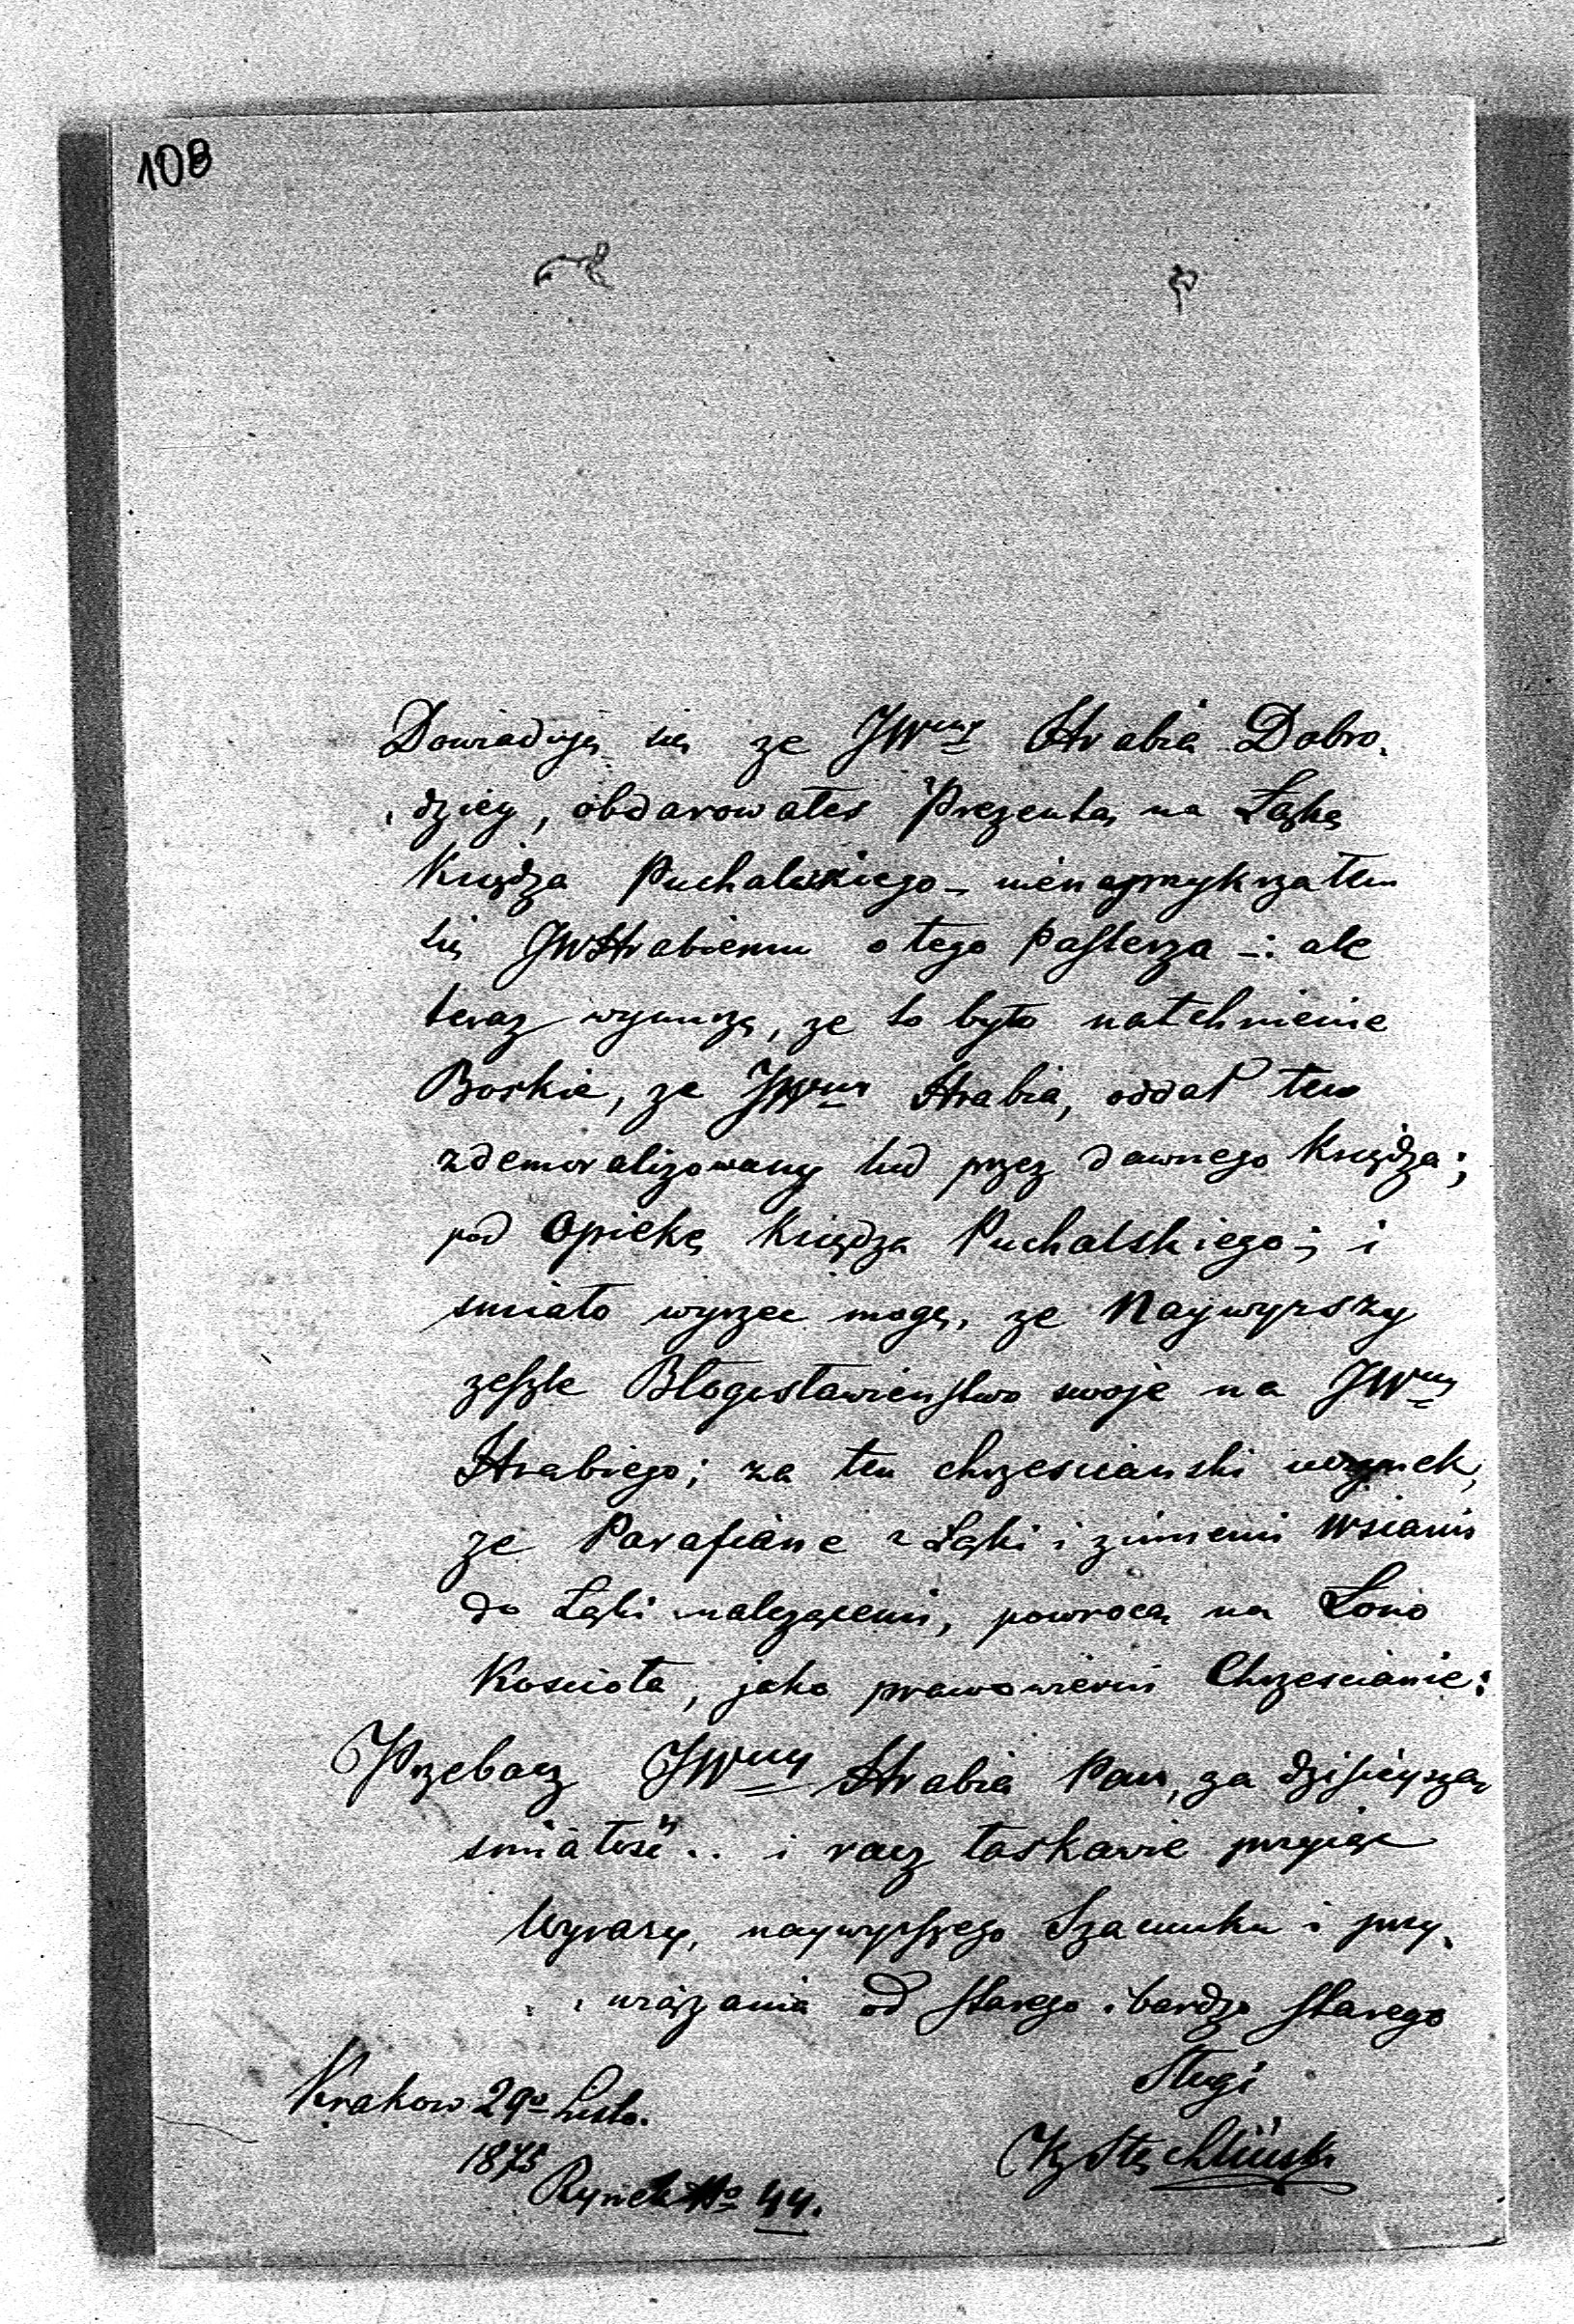 108
Dowiaduję się ze JWny Hrabia Dobro.
dziey, obdarowałes Prezentą na Łąkę
Księdza Puchalskiego – nienaprzykrzałem
się JWHrabiemu o tego Pasterza –: ale
teraz wynurzę, ze to było natchnienie
Boskie, ze JWny Hrabia, oddał ten
zdemoralizowany lud przez dawnego Księdza;
pod Opiekę Księdza Puchalskiego; i
smiało wyrzec mogę, ze Naywyzszy
zeszle Błogosławienstwo swoje na JWny
Hrabiego; za ten chrzescianski uczynek,
ze Parafianie z Łąki i z innemi Wsiami
do Łąki nalezącemi, powrócą na Łono
Koscioła, jako prawowierni Chrzescianie:
Przebacz JWny Hrabia Pan, za dzisieyszą
smiałosć .. i racz łaskawie przyjąc
Wyrazy, naywyzszego Szacunku i przy.
wiązania od starego i bardzo starego
Sługi
Krakow 29go Listo.
1875
Rynek No 44.